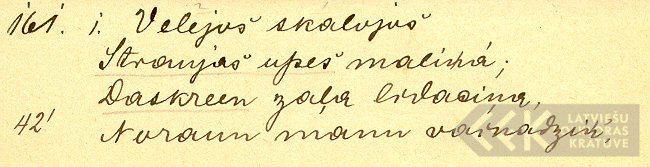 161. i. Velējuś skalojuś
Straujas upeś maliṅá;
Daskreen zaļa lidaciņa,
42' Noraun manu vaiņadziń.
LATVIEŠU
KRĀTUVE